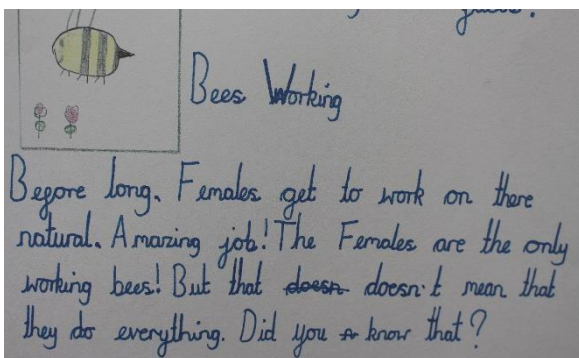 Bees Working
Before long. Females get to work on there
natural. Amazing job! The Females are the only
working bees! But that doesn doesn't mean that
they do everything. Did you know that?